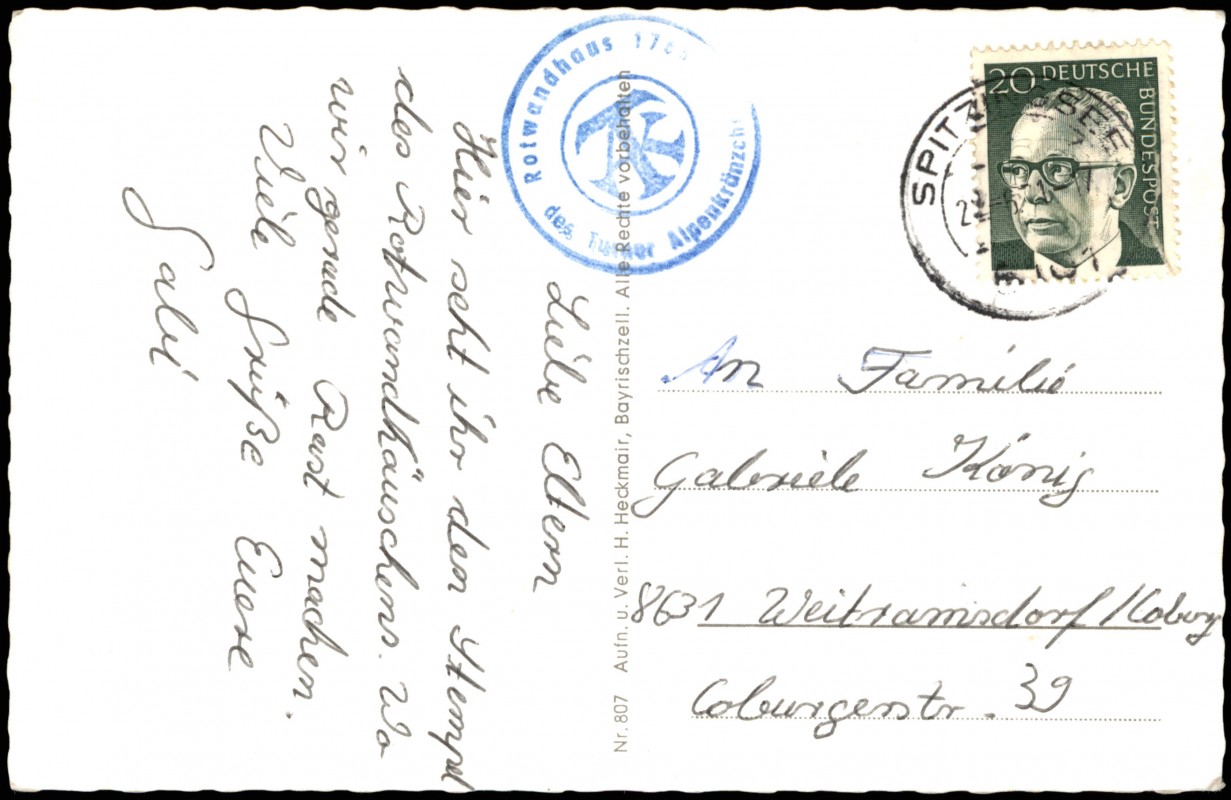 Rotwandhaus
des Turner Alpenkränzch
TAK
20 DEUTSCHE BUNDESPOST
SPITZINGSEE
Liebe Eltern
Hier seht ihr den Stempel
des Rotwandhäuschens. Wo
wir gerade Rast machen.
Viele Grüße Euere
Gabi
Nr. 807 Aufn. u. Verl. H. Heckmair, Bayrischzell. Alle Rechte vorbehalten
An Familie
Gabriele König
8631 Weitramsdorf/Coburg
Coburgerstr. 39